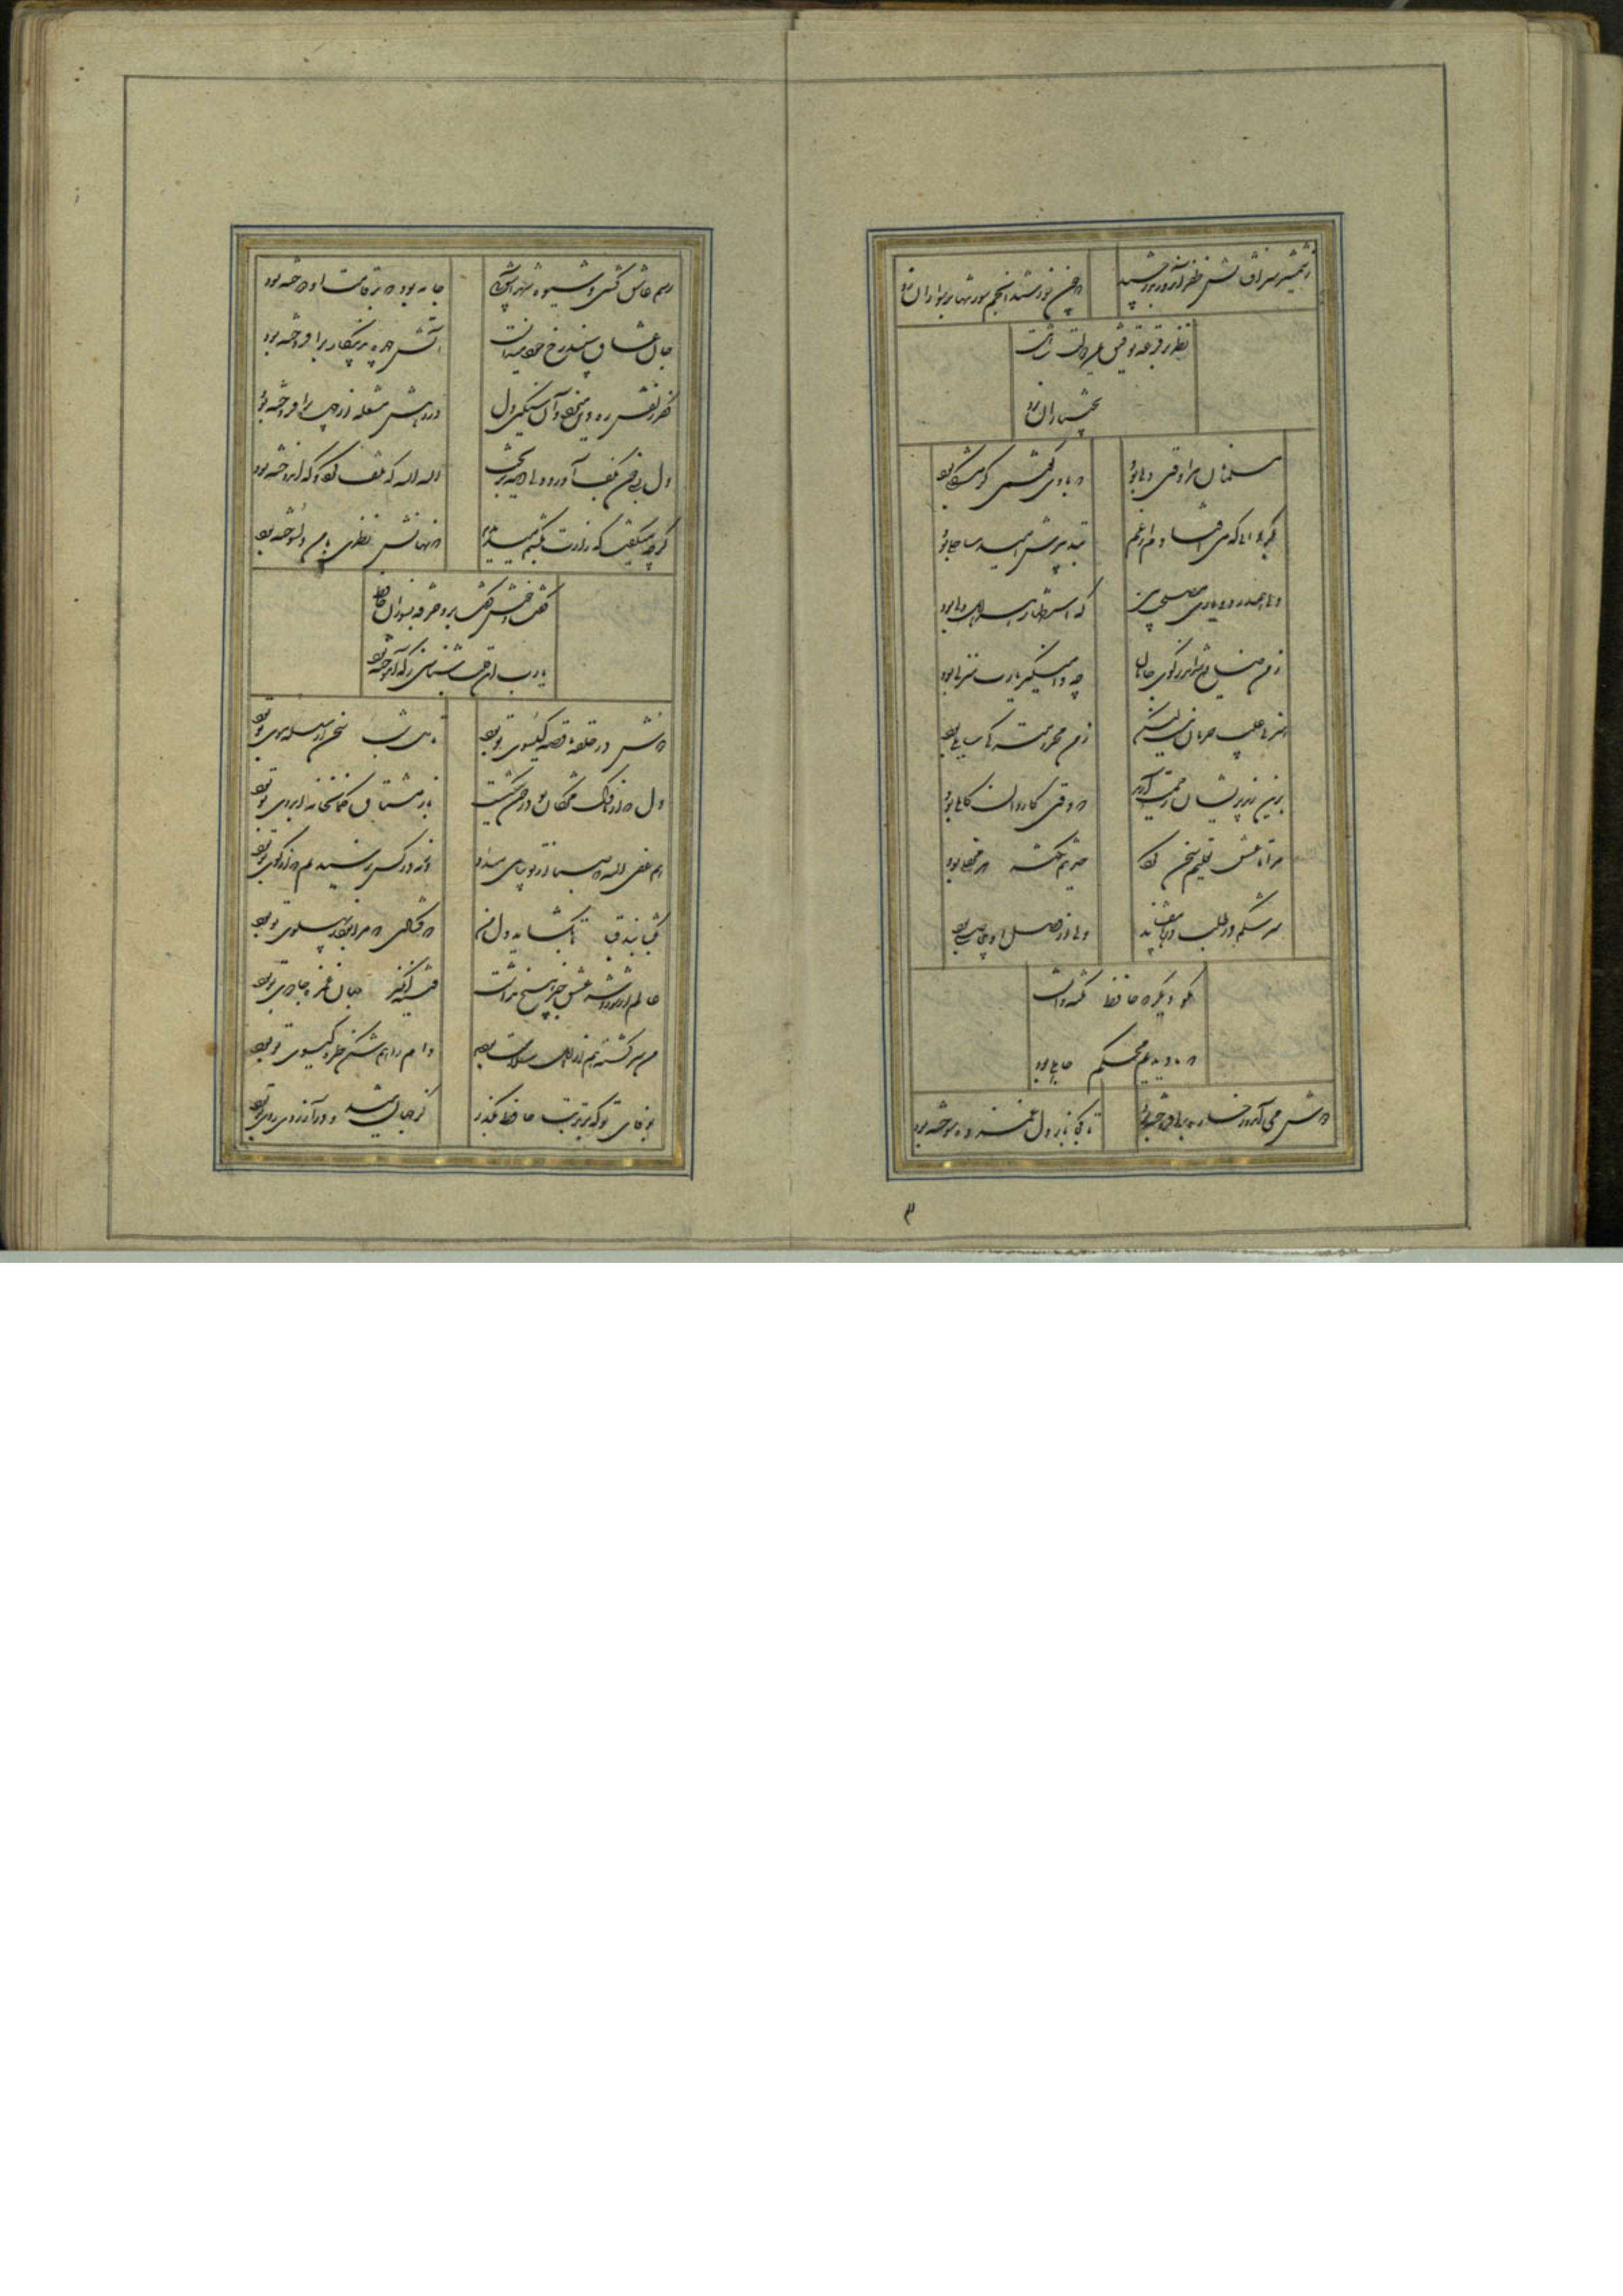 ز شمشیر سرافشانش ظفر آن روز بدرخشید
که چون خورشید انجم سوز تنها بر هزاران زد
نظر بر قرعه توفیق و یمن دولت شاهست
بختیاران زد
مسلمانان مرا وقتی دلی بود
که با وی گفتمی گر مشکلی بود
بگردابی که می افتادم از غم
بتدبیرش امید ساحلی بود
دلی همدرد و یاری مصلحت بین
که استظهار هر اهل دلی بود
ز من ضایع شد اندر کوی جانان
چه دامنگیر یارب منزلی بود
هنر بی عیب حرمان نیست لیکن
ز من محرومتر کی سایلی بود
برین رند پریشان رحمت آرید
که وقتی کاردانی کاملی بود
مرا تا عشق تعلیم سخن کرد
حدیثم نکته هر محفلی بود
سرشکم در طلب درها
ولی از وصل او بی حاصلی بود
مگو دیگر که حافظ نکته دانست
که ما دیدیم محکم جاهلی بود
دوش می آمد و رخساره برافروخته بود
تا کجا باز دل غمزده سوخته بود
رسم عاشق کشی و شیوه شهرآشوبی
جامه بود که بر قامت او دوخته بود
جان عشاق سپند رخ خود میدانست
آتش چهره بدین کار برافروخته بود
کفر زلفش ره دین میزد و آن سنگین دل
در رهش مشعله از چهره برافروخته بود
دل بسی خون بکف آورد ولی دیده بریخت
الله الله که تلف کرد و که اندوخته بود
گرچه میگفت که زارت بکشم میدیدم
که نهانش نظری با من دلسوخته بود
گفت و خوش گفت برو خرقه بسوزان حافظ
یارب این قلب شناسی ز که آموخته بود
دوش در حلقه ما قصه گیسوی تو بود
تا دل شب سخن از سلسله موی تو بود
دل که از ناوک مژگان تو در خون میگشت
باز مشتاق کمانخانه ابروی تو بود
هم عفی الله که صبا از تو پیامی میداد
ورنه در کس نرسیدیم که از کوی تو بود
بگشا بند قبا تا بگشاید دل من
که گشادی که مرا بود ز پهلوی تو بود
عالم از شور و شر عشق خبر هیچ نداشت
فتنه انگیز جهان غمزه جادوی تو بود
من سرگشته هم از اهل سلامت بودم
دام راهم شکن طره گیسوی تو بود
بوفای تو که بر تربت حافظ بگذر
کز جهان میشد و در آرزوی روی تو بود